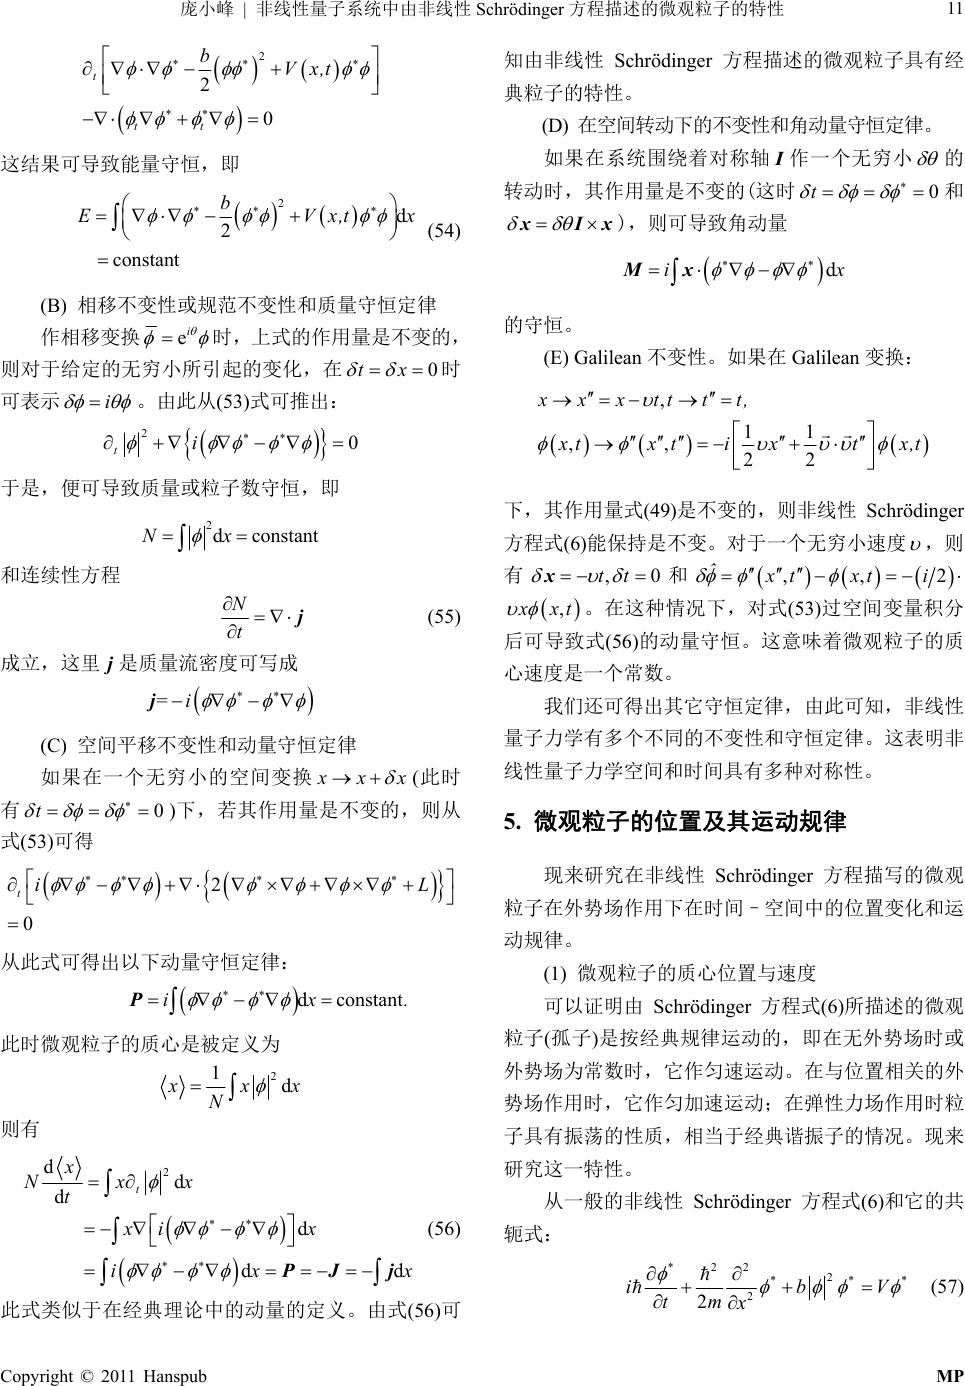 庞小峰 | 非线性量子系统中由非线性 Schrödinger 方程描述的微观粒子的特性 11
∂ₜ[∇φ·∇φ* − b/2 (φφ*)² + V(x,t)φ*φ]
−∇·(φₜ∇φ* + φₜ*∇φ) = 0
这结果可导致能量守恒，即
E = ∫(∇φ·∇φ* − b/2 (φ*φ)² + V(x,t)φ*φ)dx
= constant (54)
(B) 相移不变性或规范不变性和质量守恒定律
作相移变换 φ̅ = e^{iθ}φ 时，上式的作用量是不变的，
则对于给定的无穷小所引起的变化，在 δt = δx = 0 时
可表示 δφ = iθφ 。由此从(53)式可推出：
∂ₜ|φ|² + ∇{i(φ∇φ* − φ*∇φ)} = 0
于是，便可导致质量或粒子数守恒，即
N = ∫|φ|²dx = constant
和连续性方程
∂N/∂t = ∇·j (55)
成立，这里 j 是质量流密度可写成
j = −i(φ∇φ* − φ*∇φ)
(C) 空间平移不变性和动量守恒定律
如果在一个无穷小的空间变换 x → x + δx (此时
有 δt = δφ = δφ* = 0 )下，若其作用量是不变的，则从
式(53)可得
∂ₜ[i(φ∇φ* − φ*∇φ) + ∇·{2(∇φ* × ∇φ + ∇φ × ∇φ* + L)}]
= 0
从此式可得出以下动量守恒定律：
P = i∫(φ∇φ* − φ*∇φ)dx = constant.
此时微观粒子的质心是被定义为
⟨x⟩ = 1/N ∫x|φ|²dx
则有
N d⟨x⟩/dt = ∫x∂ₜ|φ|²dx
= −∫x∇[i(φ∇φ* − φ*∇φ)]dx (56)
= ∫i(φ∇φ* − φ*∇φ)dx = P = −J = −∫jdx
此式类似于在经典理论中的动量的定义。由式(56)可
知由非线性 Schrödinger 方程描述的微观粒子具有经
典粒子的特性。
(D) 在空间转动下的不变性和角动量守恒定律。
如果在系统围绕着对称轴 I 作一个无穷小 δθ 的
转动时，其作用量是不变的(这时 δt = δφ = δφ* = 0 和
δx = δθI × x )，则可导致角动量
M = i∫x·(φ*∇φ − φ∇φ*)dx
的守恒。
(E) Galilean 不变性。如果在 Galilean 变换：
x → x″ = x − υt, t → t″ = t,
φ(x,t) → φ″(x″,t″) = −i[1/2 υx″ + 1/2 υ⃗·υ⃗t″]φ(x,t)
下，其作用量式(49)是不变的，则非线性 Schrödinger
方程式(6)能保持是不变。对于一个无穷小速度 υ，则
有 δx = −υt, δt = 0 和 δφ̂ = φ″(x″,t″) − φ(x,t) = −(i/2)·
υxφ(x,t)。在这种情况下，对式(53)过空间变量积分
后可导致式(56)的动量守恒。这意味着微观粒子的质
心速度是一个常数。
我们还可得出其它守恒定律，由此可知，非线性
量子力学有多个不同的不变性和守恒定律。这表明非
线性量子力学空间和时间具有多种对称性。
5. 微观粒子的位置及其运动规律
现来研究在非线性 Schrödinger 方程描写的微观
粒子在外势场作用下在时间–空间中的位置变化和运
动规律。
(1) 微观粒子的质心位置与速度
可以证明由 Schrödinger 方程式(6)所描述的微观
粒子(孤子)是按经典规律运动的，即在无外势场时或
外势场为常数时，它作匀速运动。在与位置相关的外
势场作用时，它作匀加速运动；在弹性力场作用时粒
子具有振荡的性质，相当于经典谐振子的情况。现来
研究这一特性。
从一般的非线性 Schrödinger 方程式(6)和它的共
轭式：
iħ ∂φ*/∂t + ħ²/2m ∂²/∂x² φ* + b|φ|²φ* = Vφ* (57)
Copyright © 2011 Hanspub MP